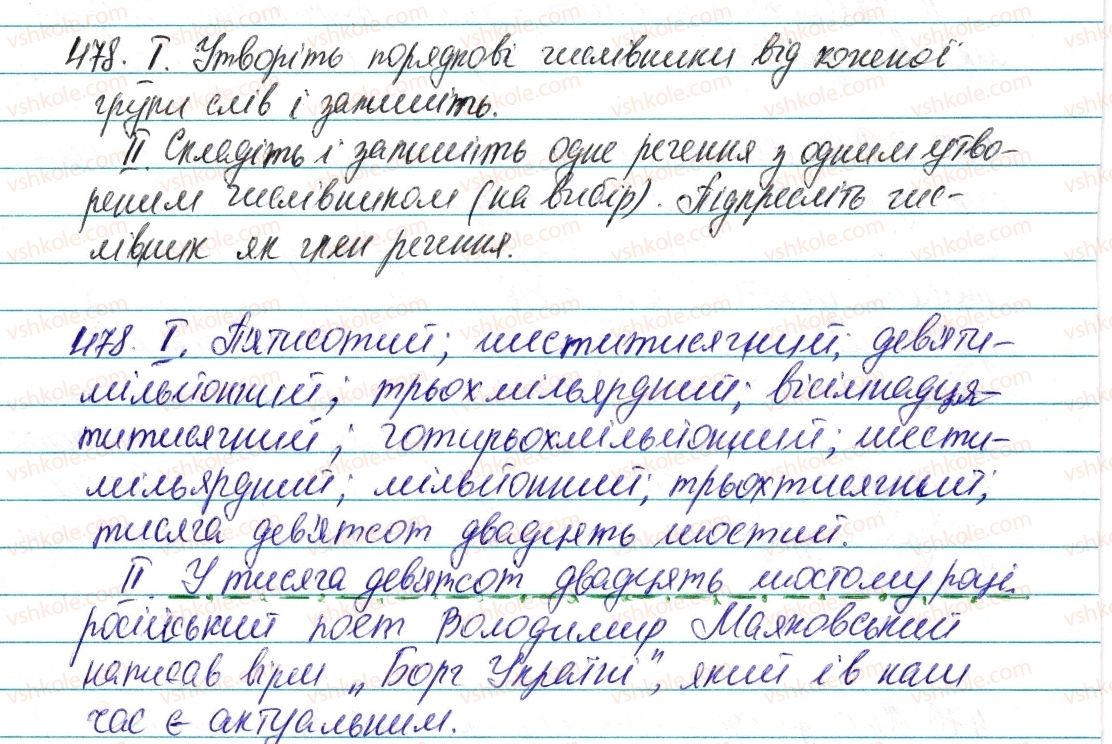 478. I. Утворіть порядкові числівники від кожної
групи слів і запишіть.
II. Складіть і запишіть одне речення з одним утво-
реним числівником (на вибір). Підкресліть чис-
лівник як член речення.
478. I. П'ятисотий; шеститисячний; дев'яти-
мільйонний; трьохмільярдний; вісімнадця-
титисячний; чотирьохмільйонний; шести-
мільярдний; мільйонний; трьохтисячний;
тисяча дев'ятсот двадцять шостий.
II У тисяча дев'ятсот двадцять шостому році
російський поет Володимир Маяковський
написав вірш „Борг Україні", який і в наш
час є актуальним.